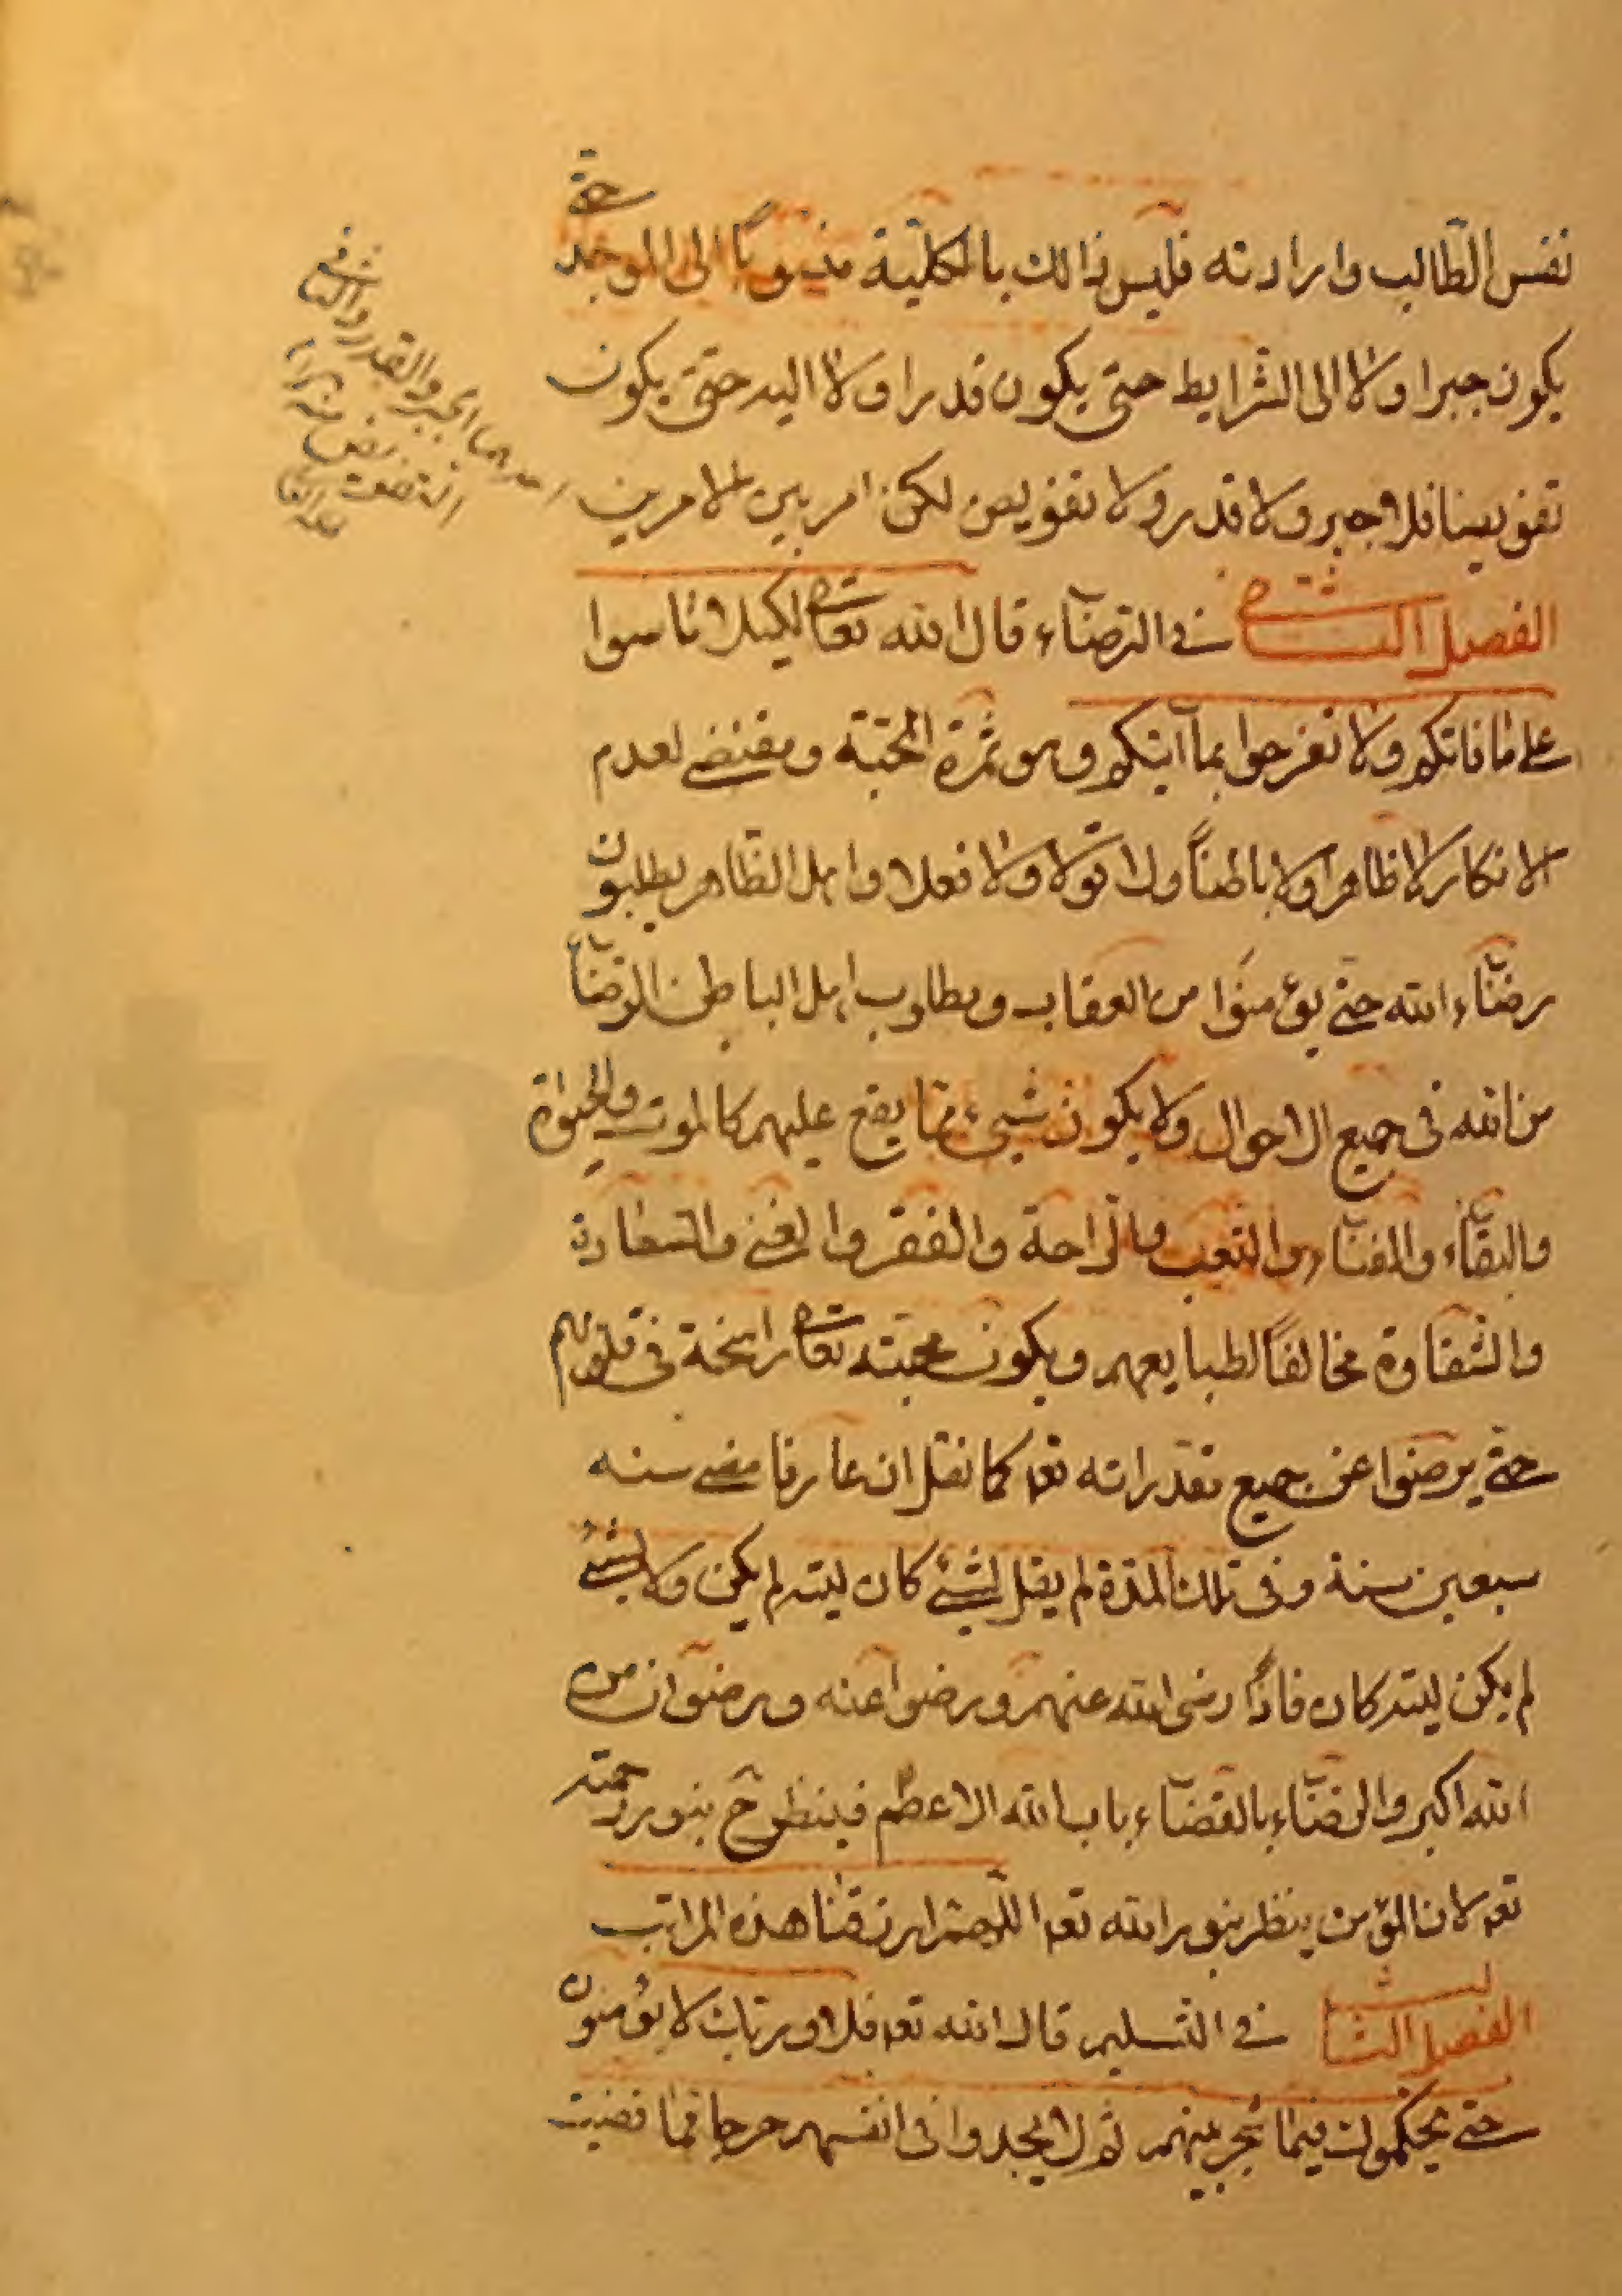 نفس الطالب وارادته فليس ذالك بالكلية منسوبا الى الموجد حتى
يكون جبرا ولا الى الشرايط حتى يكون قدرا ولا اليه حتى يكون
تفويضا فلا جبر ولا قدر ولا تفويض لكن امر بين الامرين
احدهما الجبر والقدر والثانى
التفويض
الفصل الثانى فى الرضاء قال الله تعالى لكيلا تاسوا
على ما فاتكم ولا تفرحوا بما آتيكم وهو ثمرة المحبة ومقتضى لعدم
الانكار لا ظاهرا ولا باطنا ولا قولا ولا فعلا واهل الظاهر يطلبون
رضاء الله حتى يؤمنوا من العقاب ومطلوب اهل الباطن الرضاء
من الله فى جميع الاحوال ولا يكون شىء مما يقع عليهم كالموت والحيوة
والبقاء والفناء والتعب والراحة والفقر والغنى والسعادة
والشقاوة مخالفا لطبايعهم ويكون محبته تعالى راسخة فى قلوبهم
حتى يرضوا عن جميع مقدراته تعه كما نقل ان عارفا مضى سنه
سبعين سنة وفى تلك المدة لم يقل لشىء كان ليته لم يكن ولا لشىء
لم يكن ليته كان فاذا رضى الله عنهم ورضوا عنه ورضوان من
الله اكبر والرضاء بالقضاء باب الله الاعظم فينظر ح بنور رحمته
تعه لان المؤمن ينظر بنور الله تعه اللهم ارزقنا هذه المراتب
الفصل الثالث فى التسليم قال الله تعه فلا وربك لا يؤمنون
حتى يحكموك فيما شجر بينهم ثم لا يجدوا فى انفسهم حرجا مما قضيت